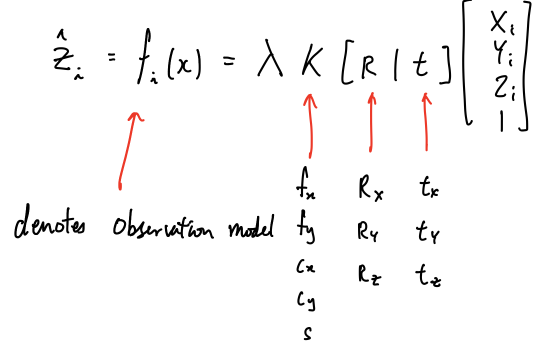 ẑᵢ = fᵢ(x) = λ K [R | t] [Xᵢ Yᵢ Zᵢ 1]
denotes observation model
fx Rx tx
fy RY tY
cx Rz tz
cy
s